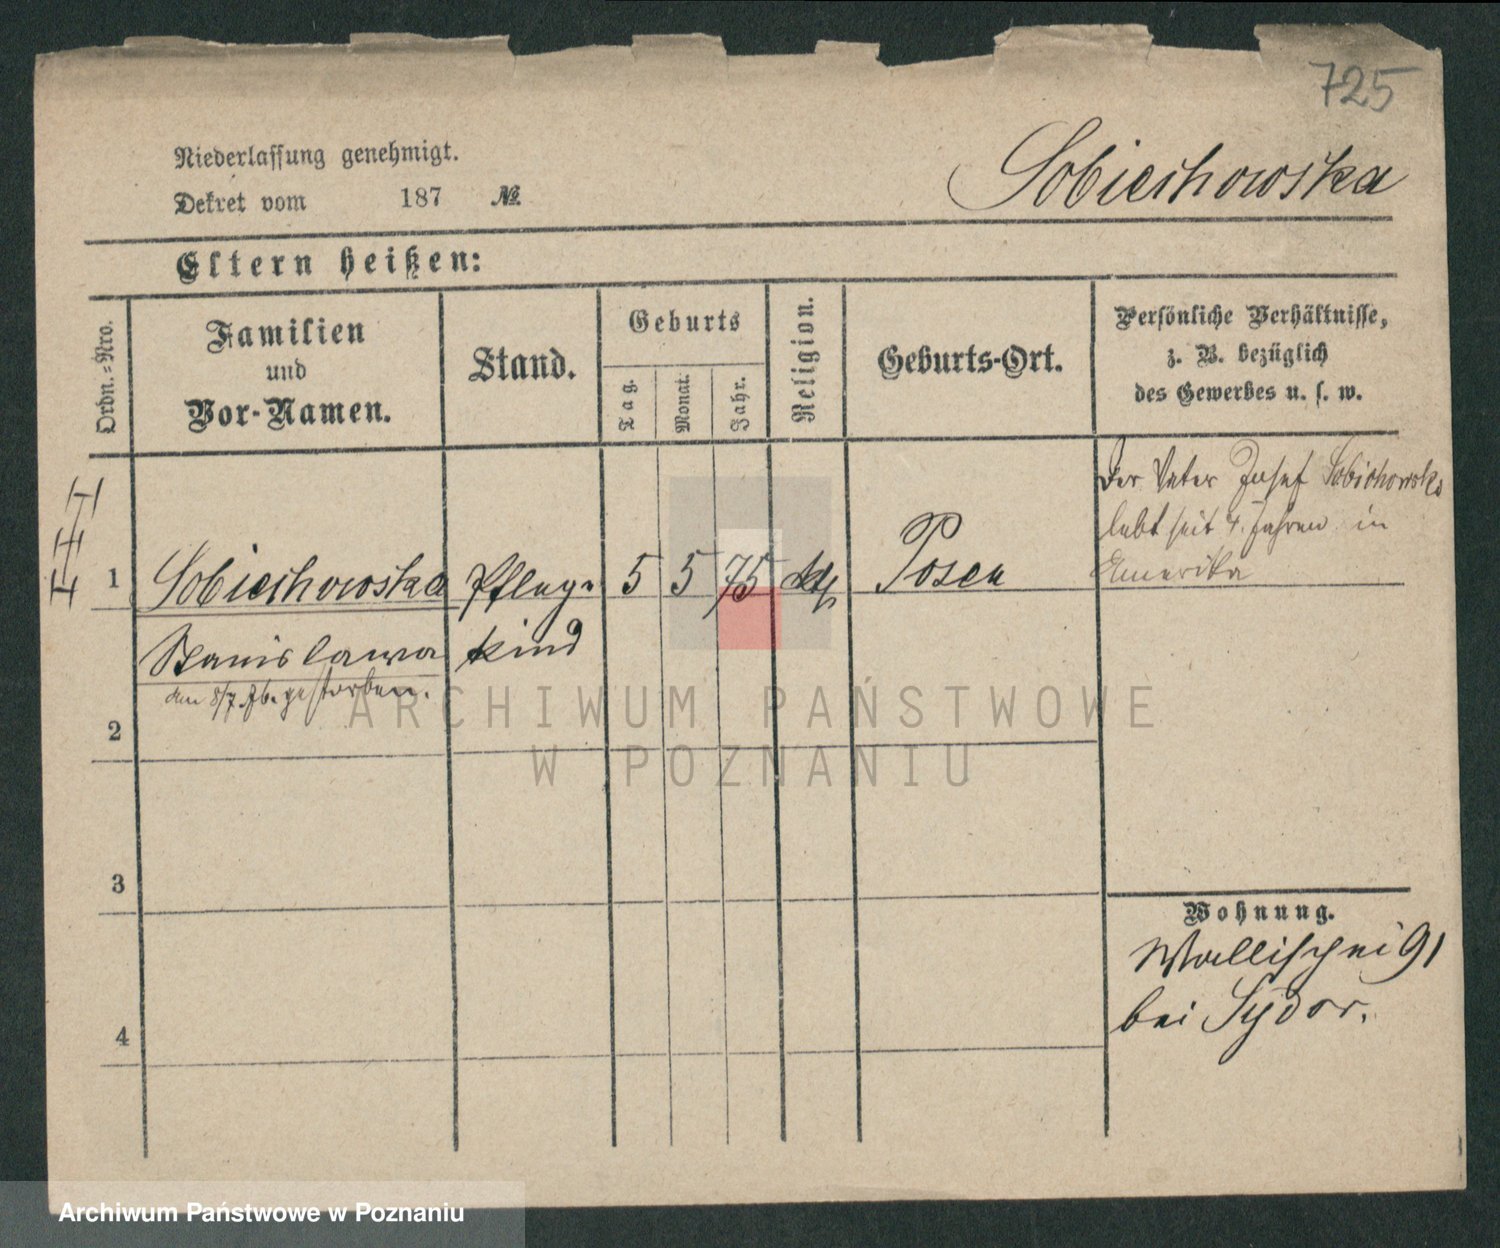 725
Niederlassung genehmigt.
Sobiechowska
Dekret vom 187 №
Eltern heißen:
Ordn.-Nro.
Familien
und
Vor-Namen.
Stand.
Geburts
Tag.
Monat.
Jahr.
Religion.
Geburts-Ort.
Persönliche Verhältnisse,
z. B. bezüglich
des Gewerbes u. s. w.
Der Vater Josef Sobichowski
lebt seit 4. Jahren in
Amerika
1 Sobiechowska Pfleg- 5 5 75 kth Posen
Stanislawa kind
den 8/7. 76. gestorben.
2
3
4
Wohnung.
Wallischei 91
bei Sydor.
ARCHIWUM PAŃSTWOWE
W POZNANIU
Archiwum Państwowe w Poznaniu